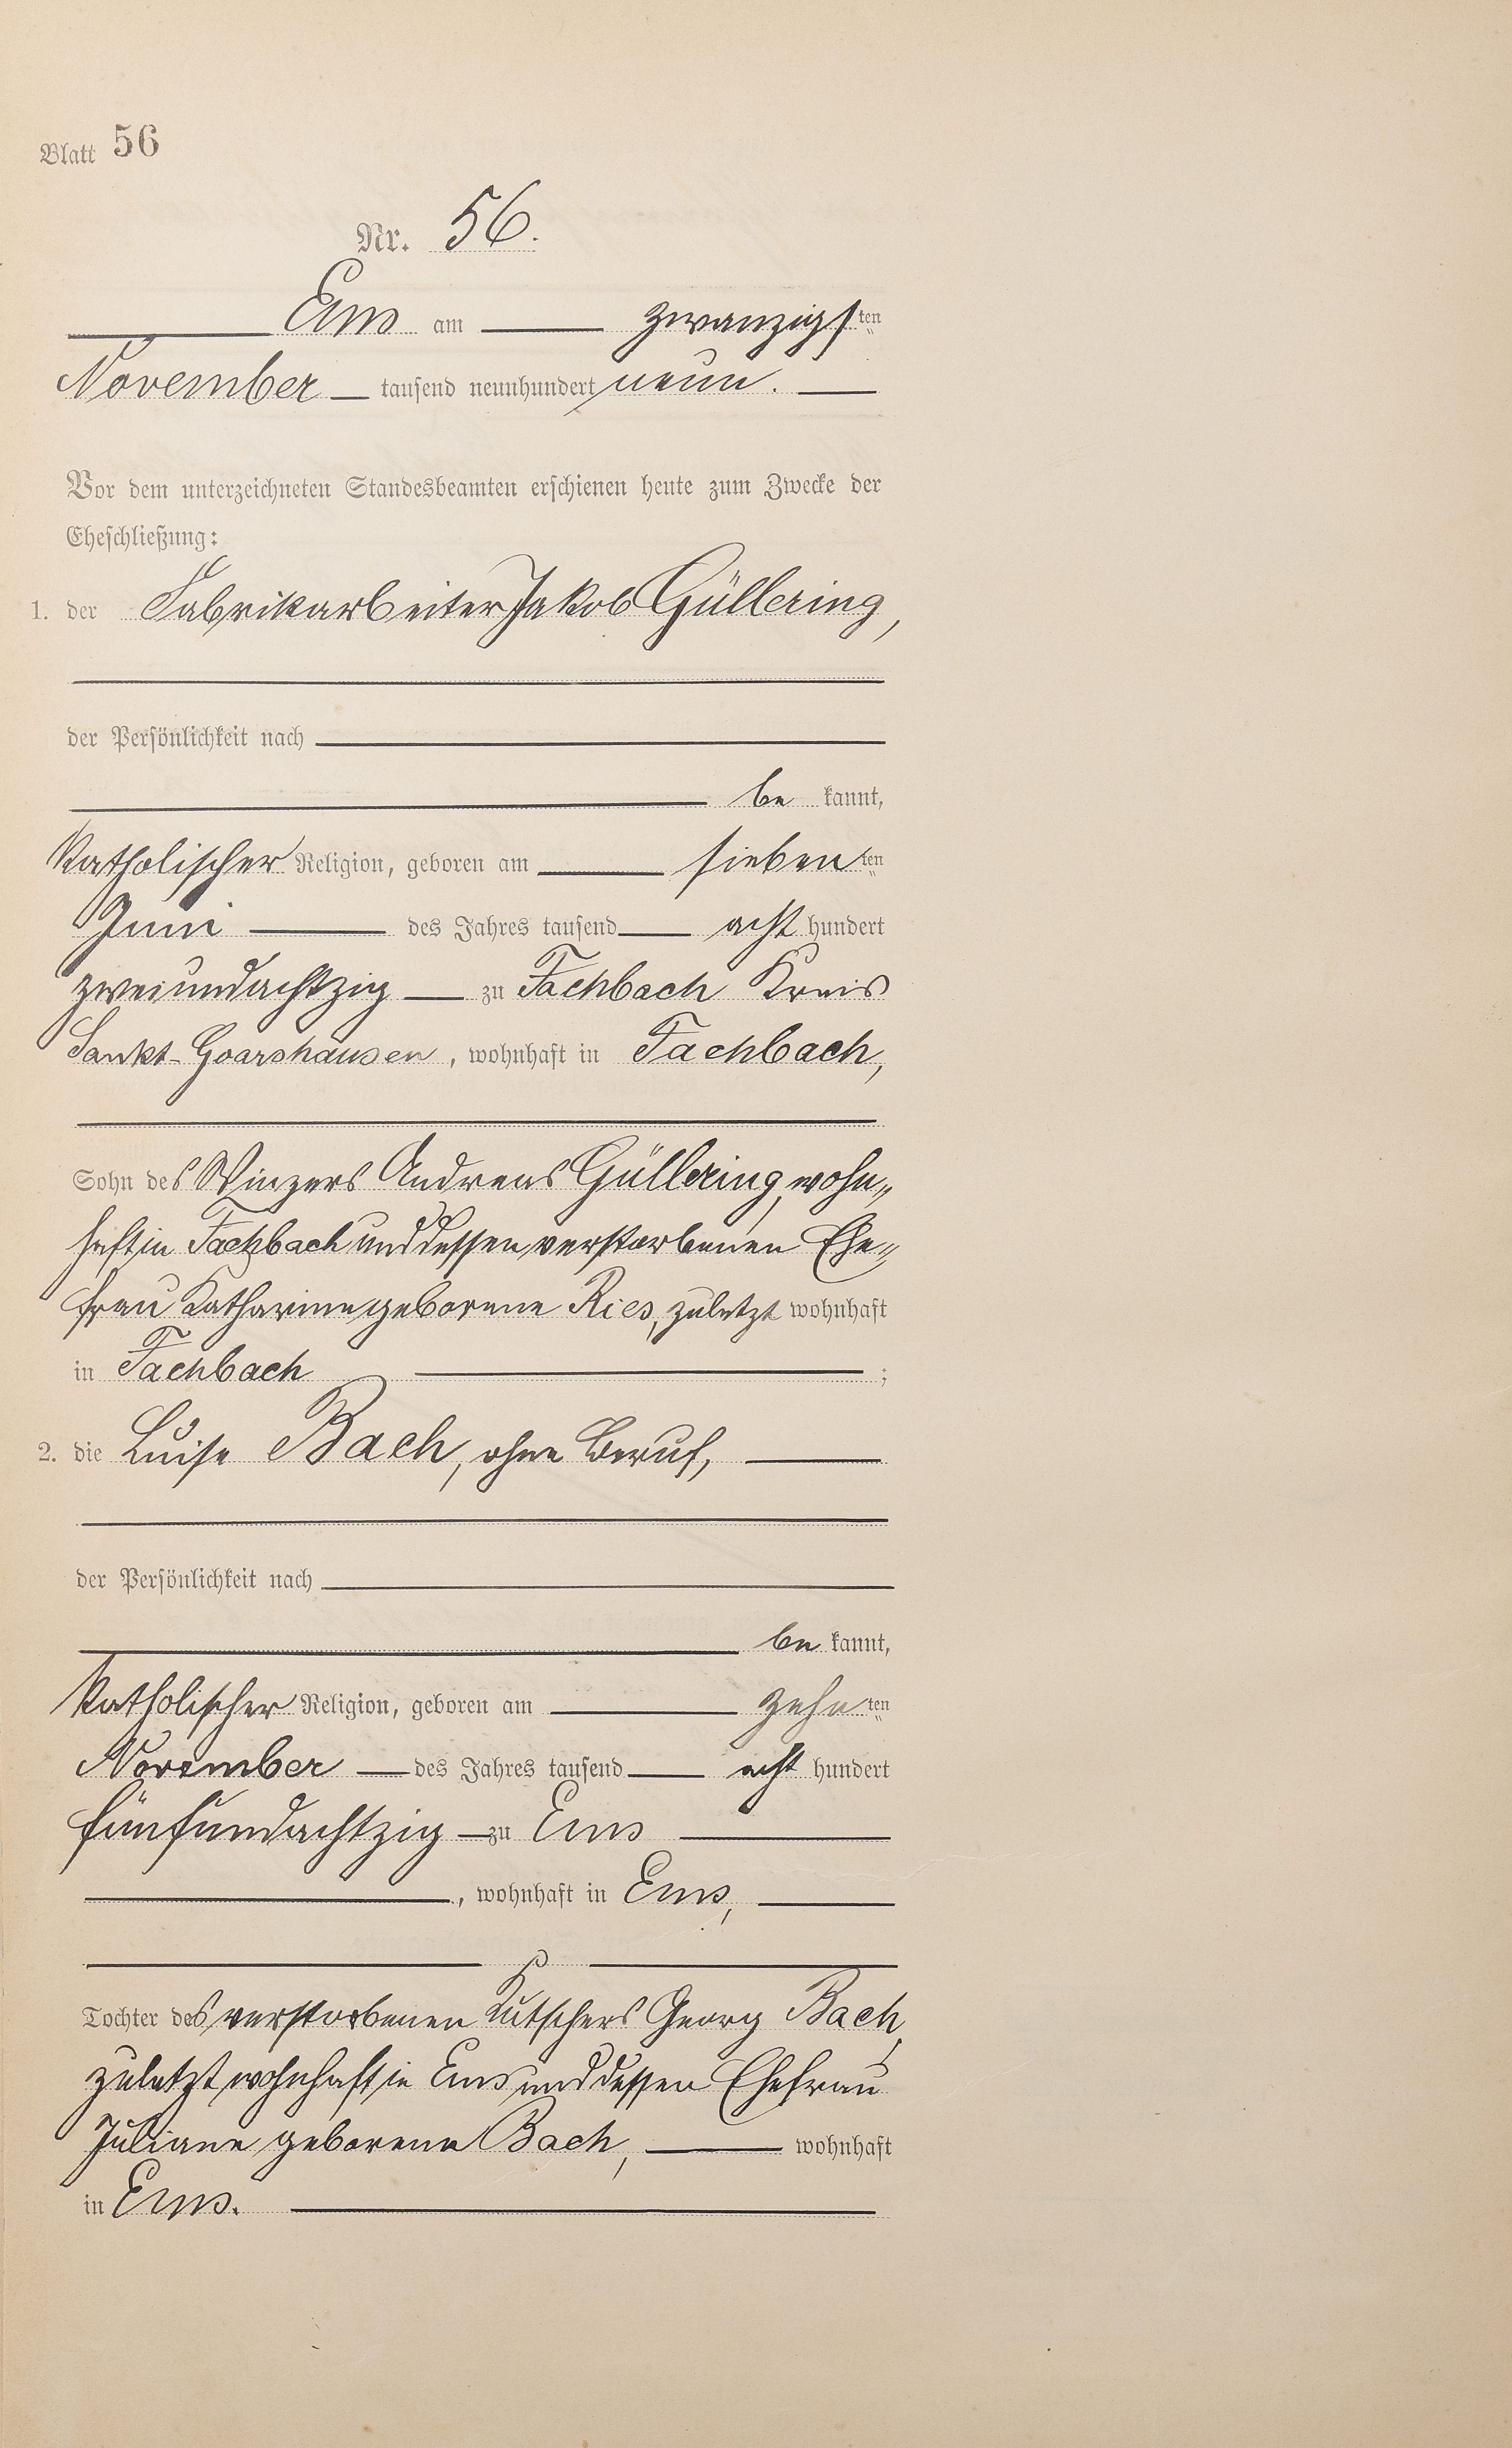 Blatt 56
Nr. 56.
Ems am zwanzigsten
November tausend neunhundert neun.
Vor dem unterzeichneten Standesbeamten erschienen heute zum Zwecke der
Eheschließung:
1. der Fabrikarbeiter Jakob Güllering,
der Persönlichkeit nach
be kannt,
katholischer Religion, geboren am siebenten
Juni des Jahres tausend acht hundert
zweiundachtzig zu Fachbach Kreis
Sankt-Goarshausen, wohnhaft in Fachbach,
Sohn des Winzers Andreas Güllering, wohn„
haft in Fachbach und dessen verstorbenen Ehe„
frau Katharina geborene Ries, zuletzt wohnhaft
in Fachbach ;
2. die Luise Bach, ohne Beruf,
der Persönlichkeit nach
be kannt,
katholischer Religion, geboren am zehnten
November des Jahres tausend acht hundert
fünfundachtzig zu Ems
, wohnhaft in Ems,
Tochter des verstorbenen Kutschers Georg Bach,
zuletzt wohnhaft in Ems und dessen Ehefrau
Juliane geborene Bach, wohnhaft
in Ems.